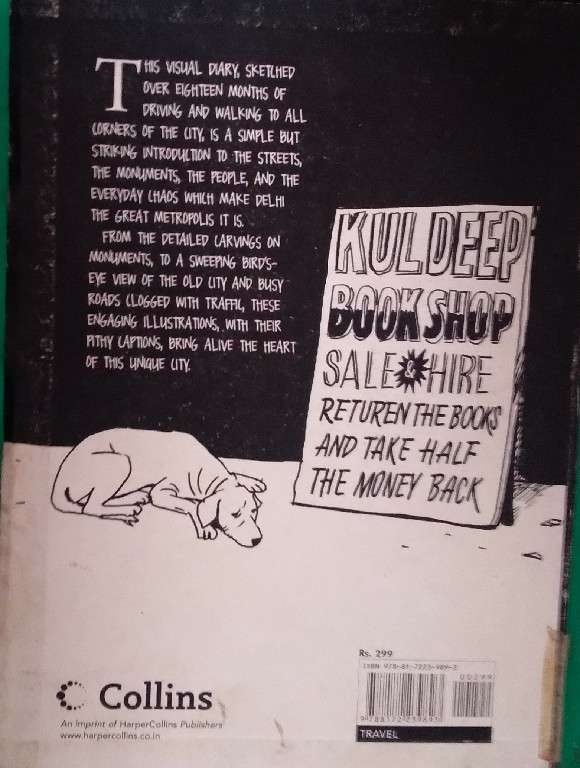 THIS VISUAL DIARY, SKETCHED
OVER EIGHTEEN MONTHS OF
DRIVING AND WALKING TO ALL
CORNERS OF THE CITY, IS A SIMPLE BUT
STRIKING INTRODUCTION TO THE STREETS,
THE MONUMENTS, THE PEOPLE, AND THE
EVERYDAY CHAOS WHICH MAKE DELHI
THE GREAT METROPOLIS IT IS.
FROM THE DETAILED CARVINGS ON
MONUMENTS, TO A SWEEPING BIRD'S-
EYE VIEW OF THE OLD CITY AND BUSY
ROADS CLOGGED WITH TRAFFIC, THESE
ENGAGING ILLUSTRATIONS, WITH THEIR
PITHY CAPTIONS, BRING ALIVE THE HEART
OF THIS UNIQUE CITY.
KULDEEP
BOOK SHOP
SALE & HIRE
RETUREN THE BOOKS
AND TAKE HALF
THE MONEY BACK
Rs. 299
ISBN 978-81-7223-989-3
00299
9788172239893
TRAVEL
Collins
An Imprint of HarperCollins Publishers
www.harpercollins.co.in